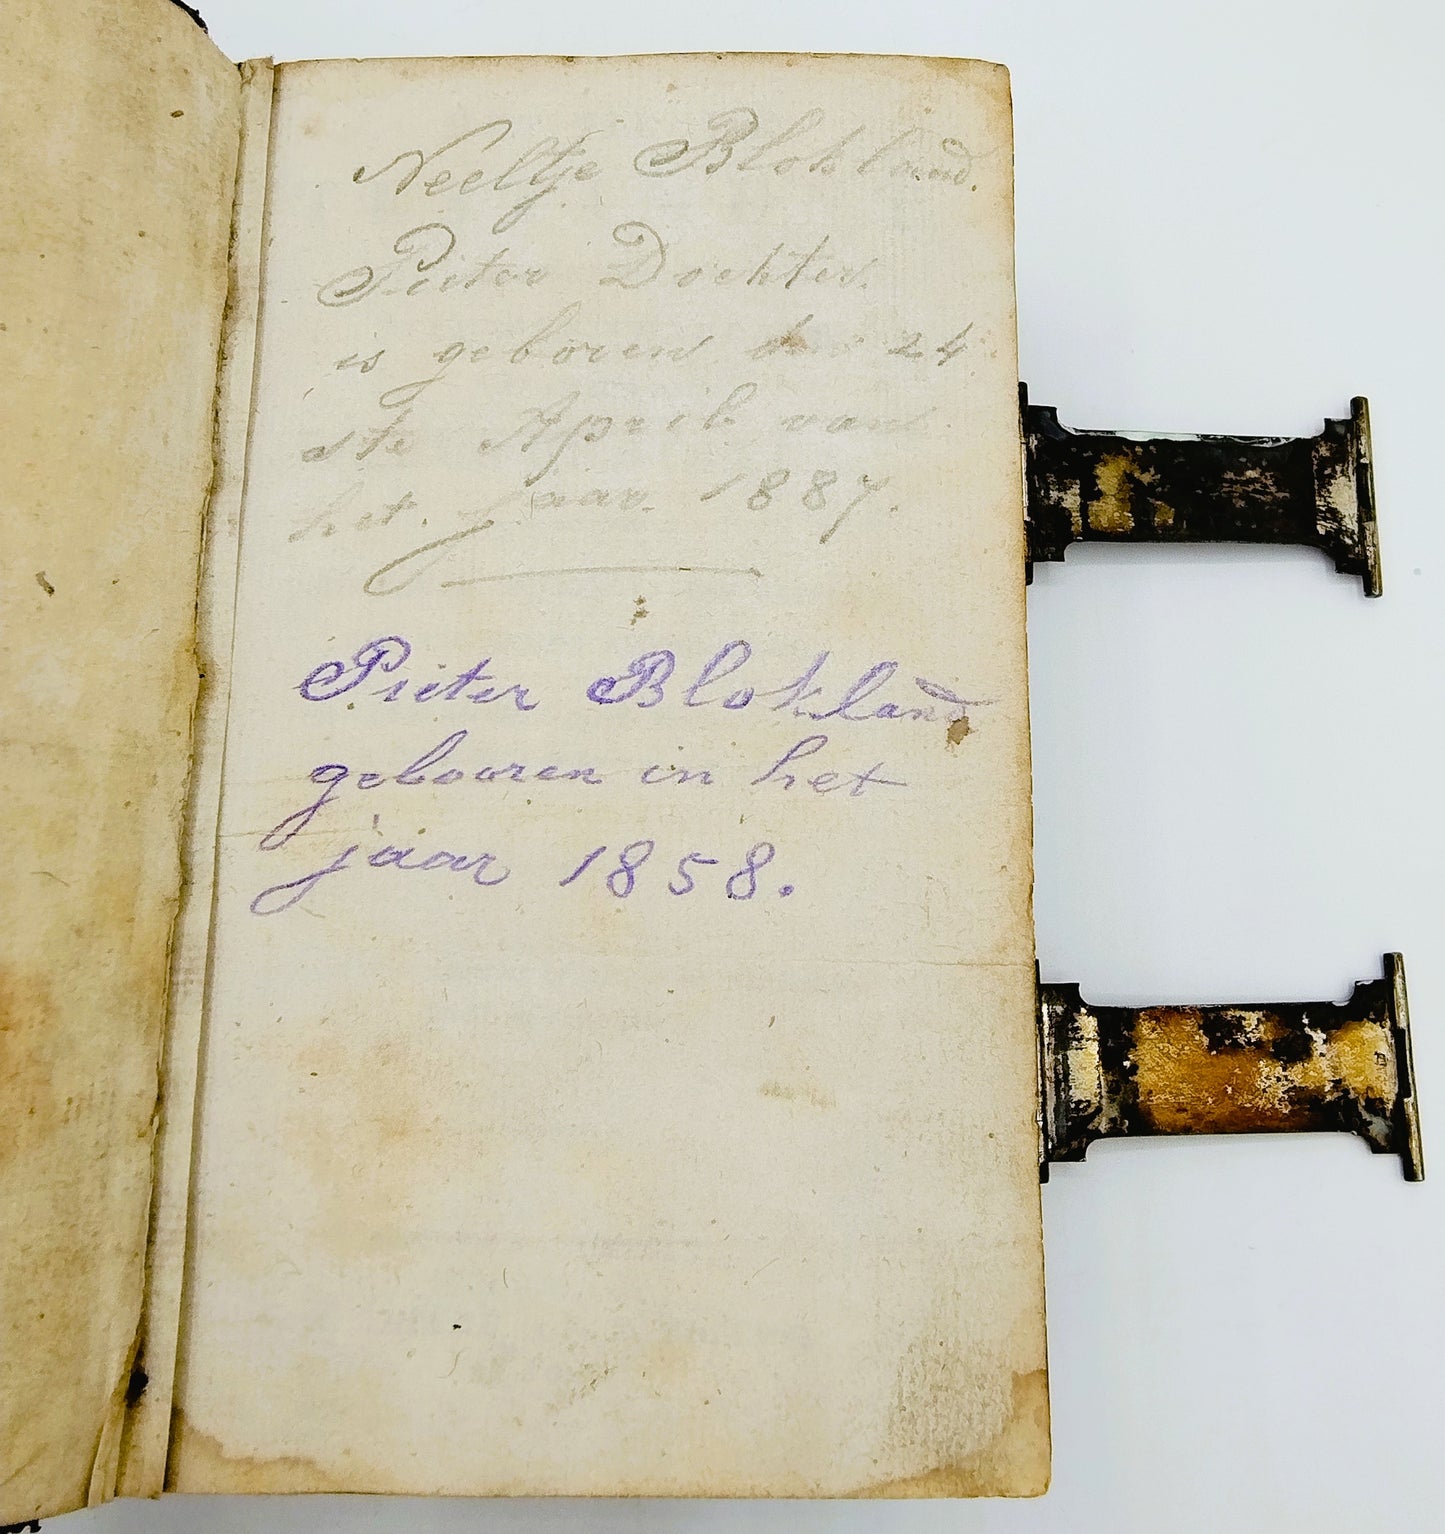 Neeltje Blokland.
Pieter Dochter.
is geboren den 24
ste April van
het jaar 1887.
Pieter Blokland
gebooren in het
jaar 1858.